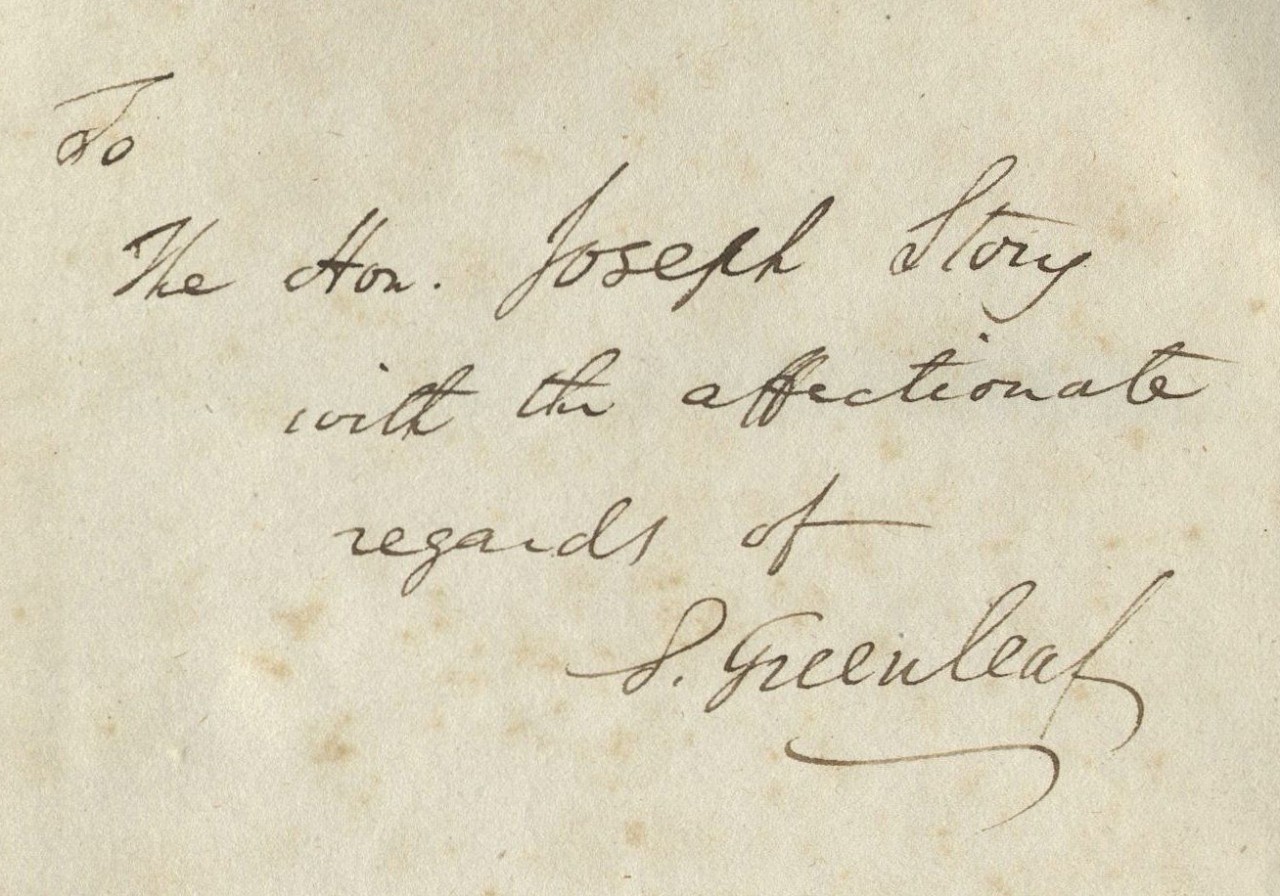 To
The Hon. Joseph Story
with the affectionate
regards of
S. Greenleaf